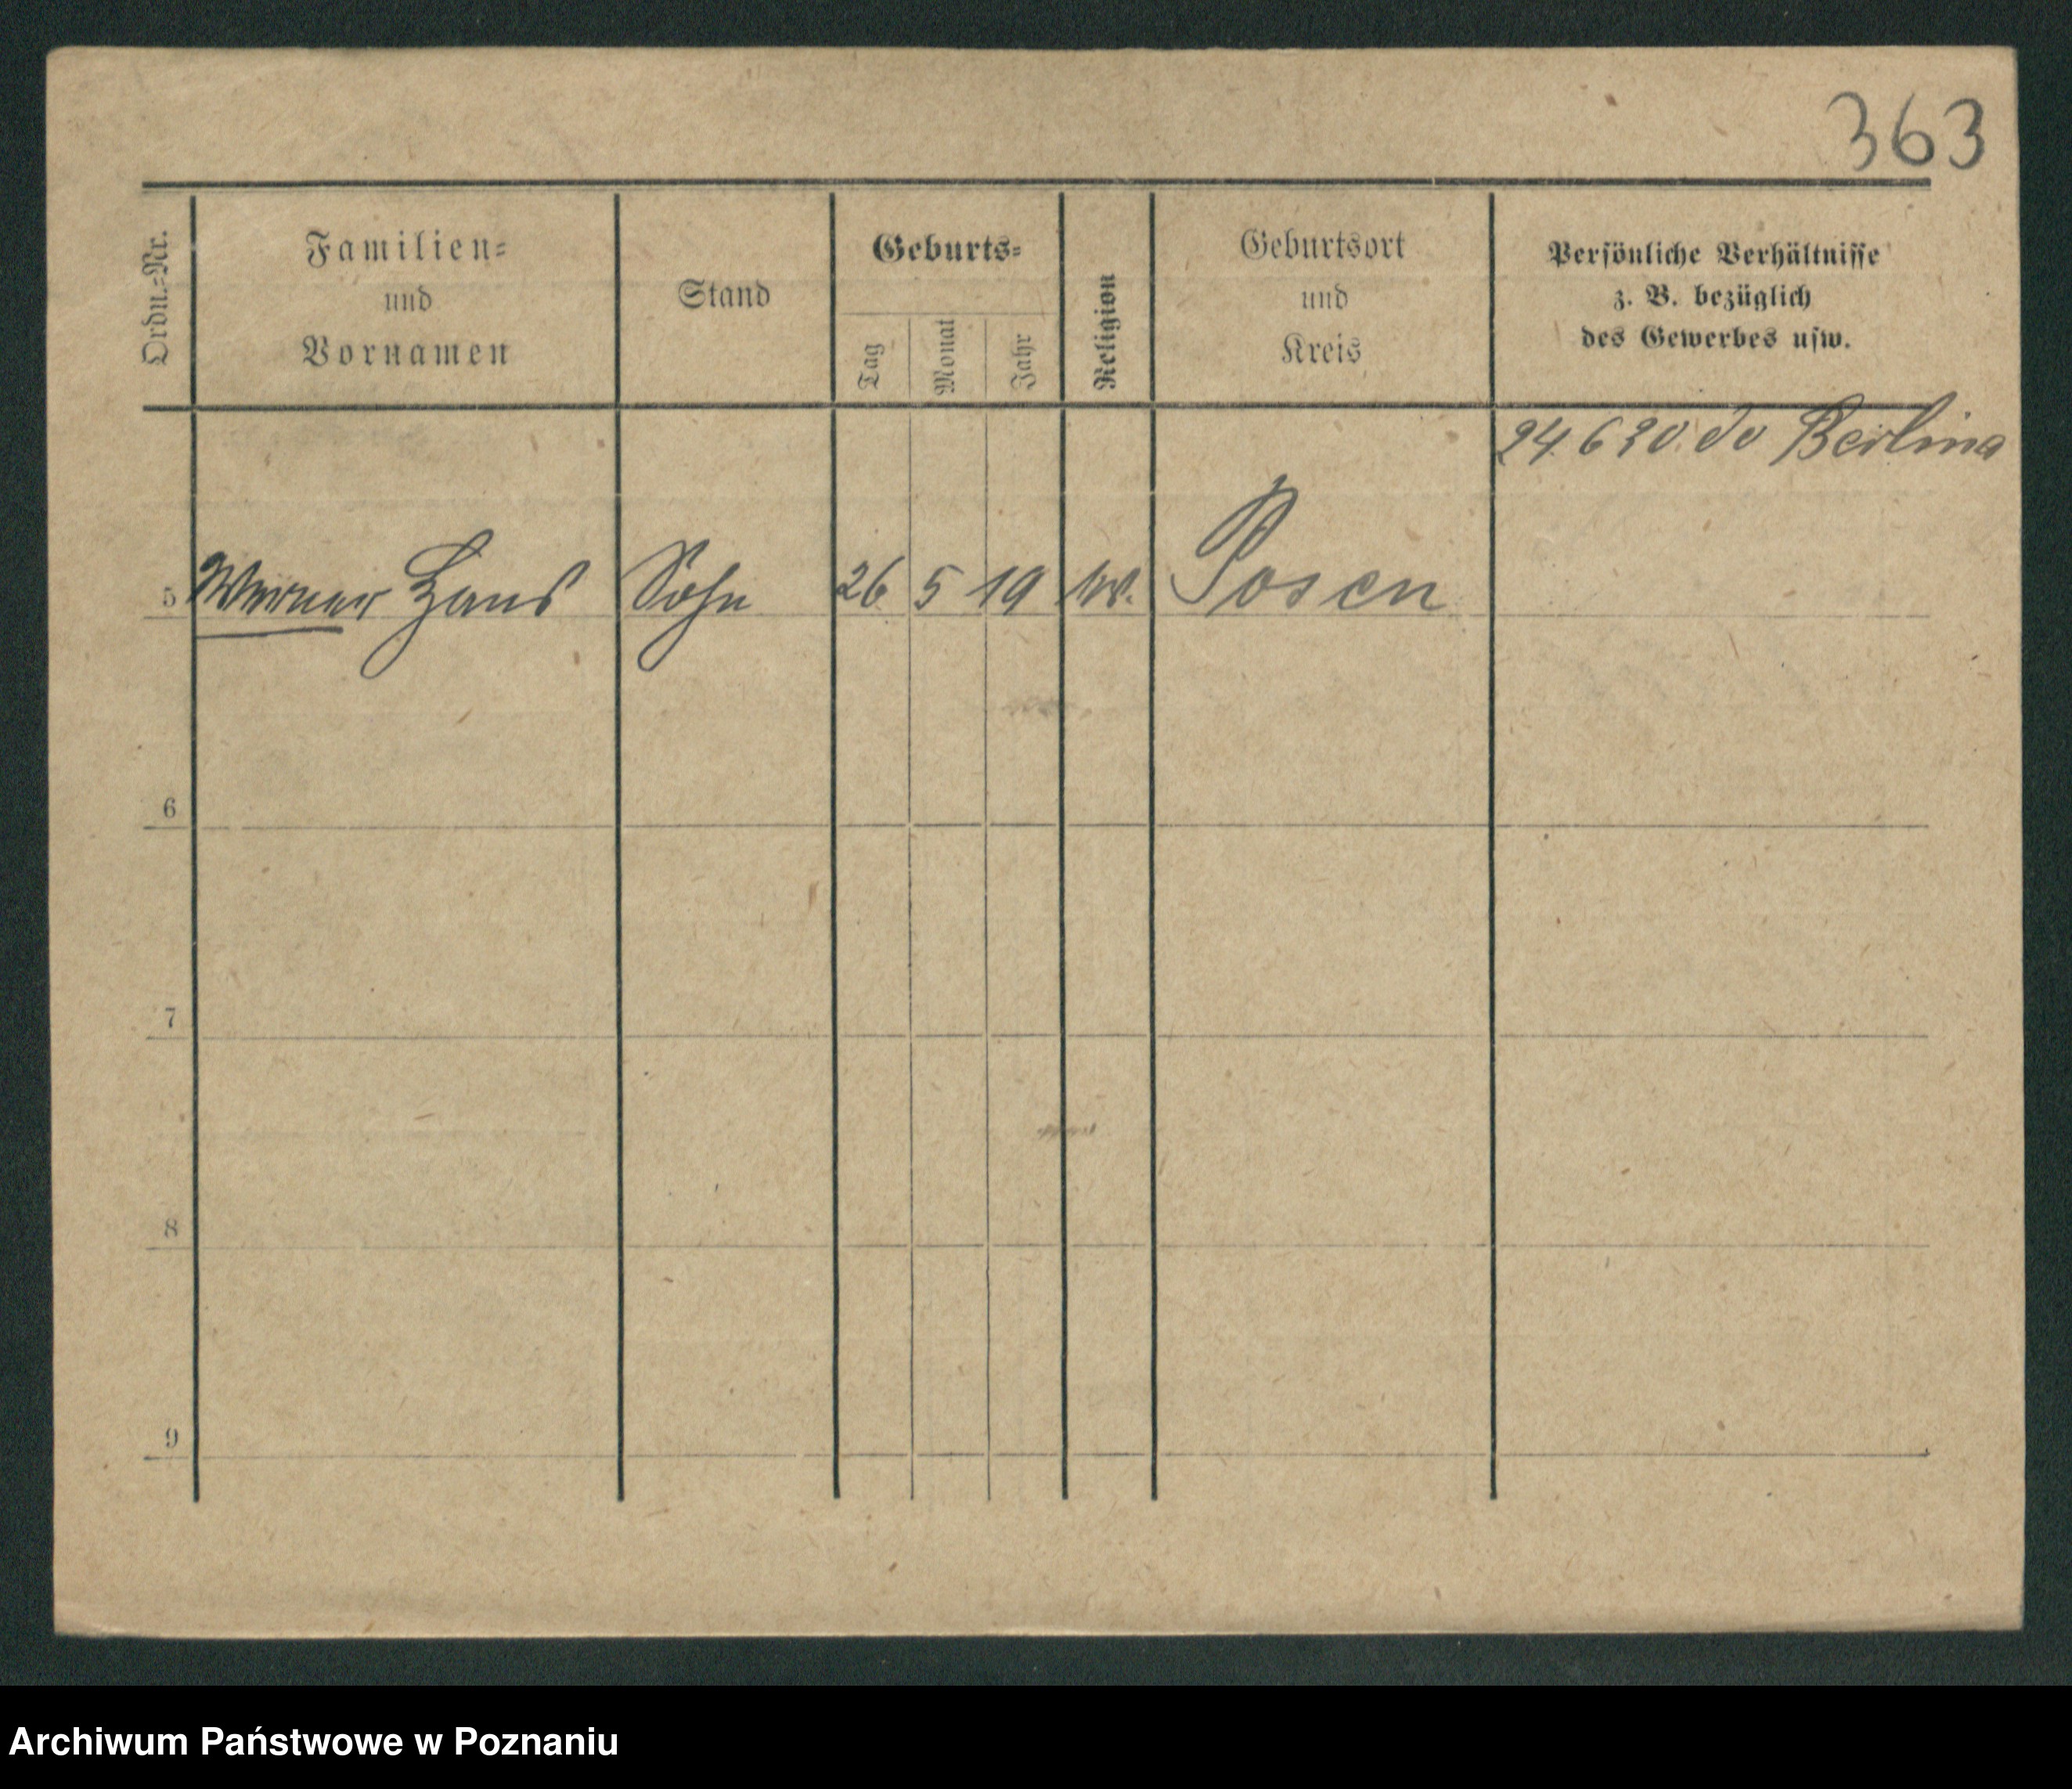 363
Ordn.-Nr.
Familien=
und
Vornamen
Stand
Geburts=
Tag
Monat
Jahr
Religion
Geburtsort
und
Kreis
Persönliche Verhältnisse
z. B. bezüglich
des Gewerbes usw.
24.6 20. do Berlina
5 Werner Hans Sohn 26 5 19 Posen
6
7
8
9
Archiwum Państwowe w Poznaniu